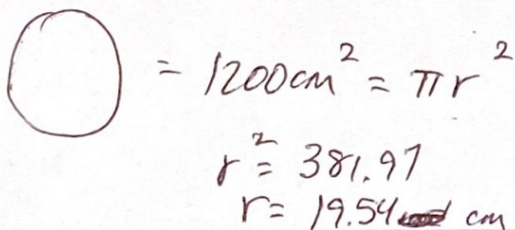 = 1200cm² = πr²
r² = 381.97
r = 19.54 cm